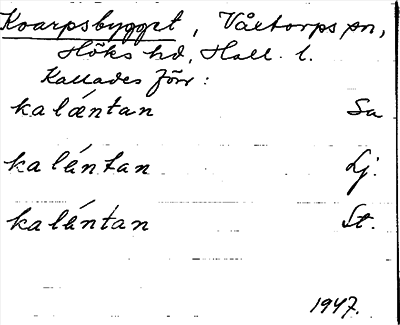 Kvarpsbygget, Våxtorps sn,
Höks hd, Hall. l.
Kallades förr:
kalǽntan Sa
kalǽntan Lj.
kalǽntan St.
1947.